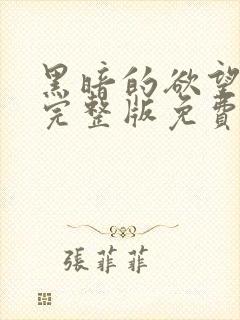 黑暗的欲望
完整版免費
張菲菲